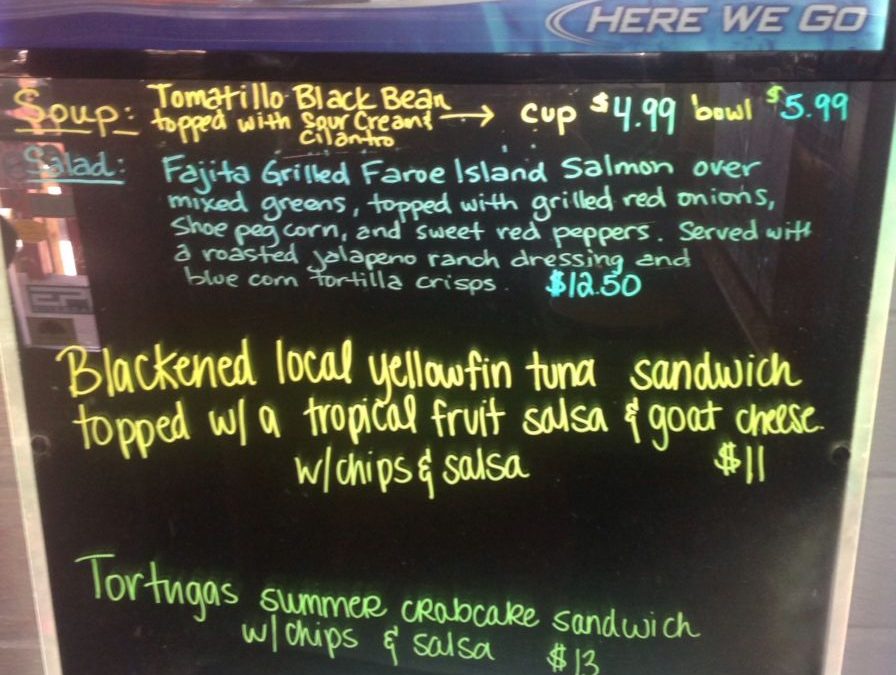 HERE WE GO
Soup: Tomatillo Black Bean
topped with Sour Cream & → cup $4.99 bowl $5.99
Cilantro
Salad: Fajita Grilled Faroe Island Salmon over
mixed greens, topped with grilled red onions,
Shoe peg corn, and sweet red peppers. Served with
a roasted jalapeno ranch dressing and
blue corn tortilla crisps. $12.50
Blackened local yellowfin tuna sandwich
topped w/ a tropical fruit salsa & goat cheese.
w/chips & salsa $11
Tortugas summer crabcake sandwich
w/chips & salsa $13